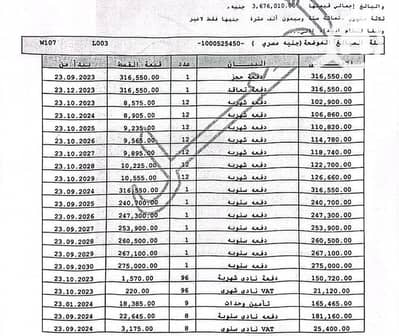 والبالغ إجمالي قيمتها 3,676,010.00 جنيه.
ثلاثة مليون ستمائة ستة وسبعون ألف عشرة جنيها فقط لاغير
المبالغ الموضحة (جنيه مصري ) -1000525450- L003 W107
البيــــان عدد قيمة القسط
316,550.00 دفعة حجز 1 316,550.00 23.09.2023
316,550.00 دفعة تعاقد 1 316,550.00 23.12.2023
102,900.00 دفعة شهرية 12 8,575.00 23.10.2023
106,860.00 دفعة شهرية 12 8,905.00 23.10.2024
110,820.00 دفعة شهرية 12 9,235.00 23.10.2025
114,780.00 دفعة شهرية 12 9,565.00 23.10.2026
118,740.00 دفعة شهرية 12 9,895.00 23.10.2027
122,700.00 دفعة شهرية 12 10,225.00 23.10.2028
126,660.00 دفعة شهرية 12 10,555.00 23.10.2029
316,550.00 دفعه سنويه 1 316,550.00 23.09.2024
240,700.00 دفعه سنويه 1 240,700.00 23.09.2025
247,300.00 دفعه سنويه 1 247,300.00 23.09.2026
253,900.00 دفعه سنويه 1 253,900.00 23.09.2027
260,500.00 دفعه سنويه 1 260,500.00 23.09.2028
267,100.00 دفعه سنويه 1 267,100.00 23.09.2029
275,000.00 دفعه سنويه 1 275,000.00 23.09.2030
150,720.00 دفعة نادى شهرية 96 1,570.00 23.10.2023
21,120.00 VAT نادى شهرى 96 220.00 23.10.2023
165,465.00 تأمين وحدات 9 18,385.00 23.01.2024
181,160.00 دفعة نادى سنوية 8 22,645.00 23.09.2024
25,400.00 VAT نادى سنوى 8 3,175.00 23.09.2024